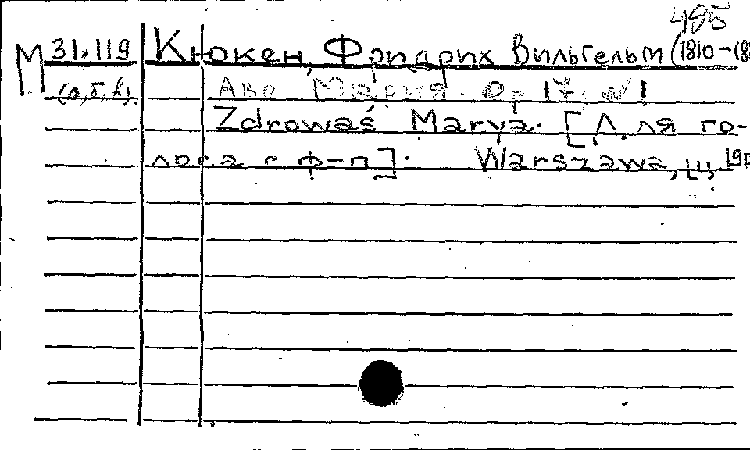 485
М 31.119 Кюкен, Фридрих Вильгельм (1810-(8
(а,б,в). Аве Мария. Op 17, N 1
Zdrowaś Marya. [Для го-
лоса с ф-п]. Warszawa,